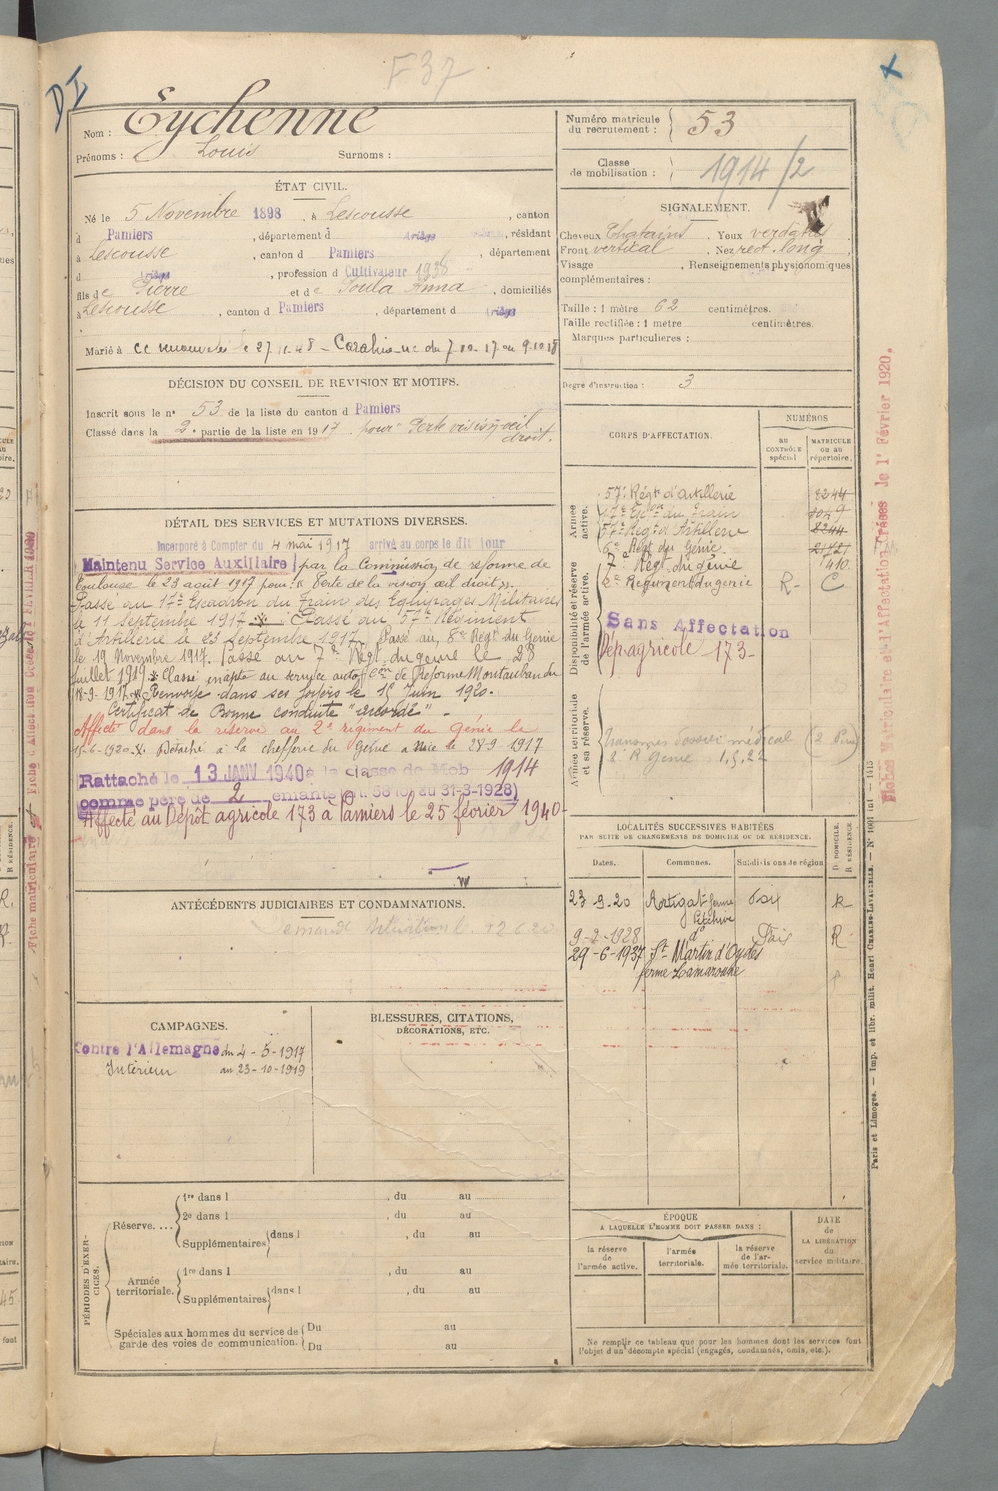 F37
DI
Nom : Eychenne
Prénoms : Louis Surnoms :
Numéro matricule du recrutement : 53
Classe de mobilisation : 1914/2
ÉTAT CIVIL.
Né le 5 Novembre 1898, à Lescousse, canton
d Pamiers, département d Ariège, résidant
à Lescousse, canton d Pamiers, département
d Ariège, profession d Cultivateur 1938
fils de Pierre et de Soula Anna, domiciliés
à Lescousse, canton d Pamiers, département d Ariège
Marié à
SIGNALEMENT.
Cheveux Chatains. Yeux verdâtres
Front vertical. Nez rect. long
Visage . Renseignements physionomiques
complémentaires :
Taille : 1 mètre 62 centimètres.
Taille rectifiée : 1 mètre centimètres.
Marques particulières :
Degré d'instruction : 3
DÉCISION DU CONSEIL DE REVISION ET MOTIFS.
Inscrit sous le n° 53 de la liste du canton d Pamiers
Classé dans la 2e partie de la liste en 1917 pour "Perte vision œil
droit.
DÉTAIL DES SERVICES ET MUTATIONS DIVERSES.
Incorporé à Compter du 4 mai 1917 arrivé au corps le dit jour
Maintenu Service Auxiliaire par la Commission de réforme de
Toulouse le 23 août 1917 pour : « Perte de la vision œil droit ».
Passé au 17e Escadron du Train des Equipages Militaires
le 11 Septembre 1917. Passé au 57e Régiment
d'Artillerie le 23 Septembre 1917. Passé au 6e Régt du Génie
le 19 Novembre 1917. Passé au 7e Régt du génie le 28
Juillet 1919. Classé inapte au service auto Con de Réforme Montauban du
18-9-1917. Renvoyé dans ses foyers le 15 Juin 1920.
Certificat de Bonne conduite "accordé".
Affecté dans la réserve au 2e régiment du Génie le
15-6-1920. Détaché à la chefferie du Génie à Nice le 28-9-1917
Rattaché le 13 JANV 1940 à la classe de Mob 1914
comme père de 2 enfants (Art. 58 loi du 31-3-1928)
Affecté au Dépôt agricole 173 à Pamiers le 25 février 1940
CORPS D'AFFECTATION.
NUMÉROS
au CONTRÔLE spécial
MATRICULE ou au répertoire.
Armée active.
57e Régt d'artillerie 8244
17e Escon du Train
57e Régt d'Artillerie 8244
6e Régt du Génie 21721
7e Régt du génie
Disponibilité et réserve de l'armée active.
2e Regiment du genie R- C
Sans Affectation
Dép. agricole 173-
Armée territoriale et sa réserve.
Transmis Dossier médical
ANTÉCÉDENTS JUDICIAIRES ET CONDAMNATIONS.
LOCALITÉS SUCCESSIVES HABITÉES
PAR SUITE DE CHANGEMENTS DE DOMICILE OU DE RÉSIDENCE.
Dates. Communes. Subdivisions de région
D. DOMICILE. R. RÉSIDENCE
23-9-20 Artigat Foix R
9-2-1928 do Foix R
29-6-1937 St Martin d'Oydes
ferme Lamarouane
CAMPAGNES.
Contre l'Allemagne du 4-5-1917
Intérieur au 23-10-1919
BLESSURES, CITATIONS,
DÉCORATIONS, ETC.
PÉRIODES D'EXERCICES.
Réserve....
1re dans l , du au
2e dans l , du au
Supplémentaires dans l , du au
Armée territoriale.
1re dans l , du au
Supplémentaires dans l , du au
Spéciales aux hommes du service de garde des voies de communication.
Du au
Du au
ÉPOQUE
A LAQUELLE L'HOMME DOIT PASSER DANS :
la réserve de l'armée active.
l'armée territoriale.
la réserve de l'armée territoriale.
DATE de LA LIBÉRATION du service militaire.
Ne remplir ce tableau que pour les hommes dont les services font
l'objet d'un décompte spécial (engagés, condamnés, omis, etc.).
Paris et Limoges. — Imp. et libr. milit. Henri CHARLES-LAVAUZELLE.